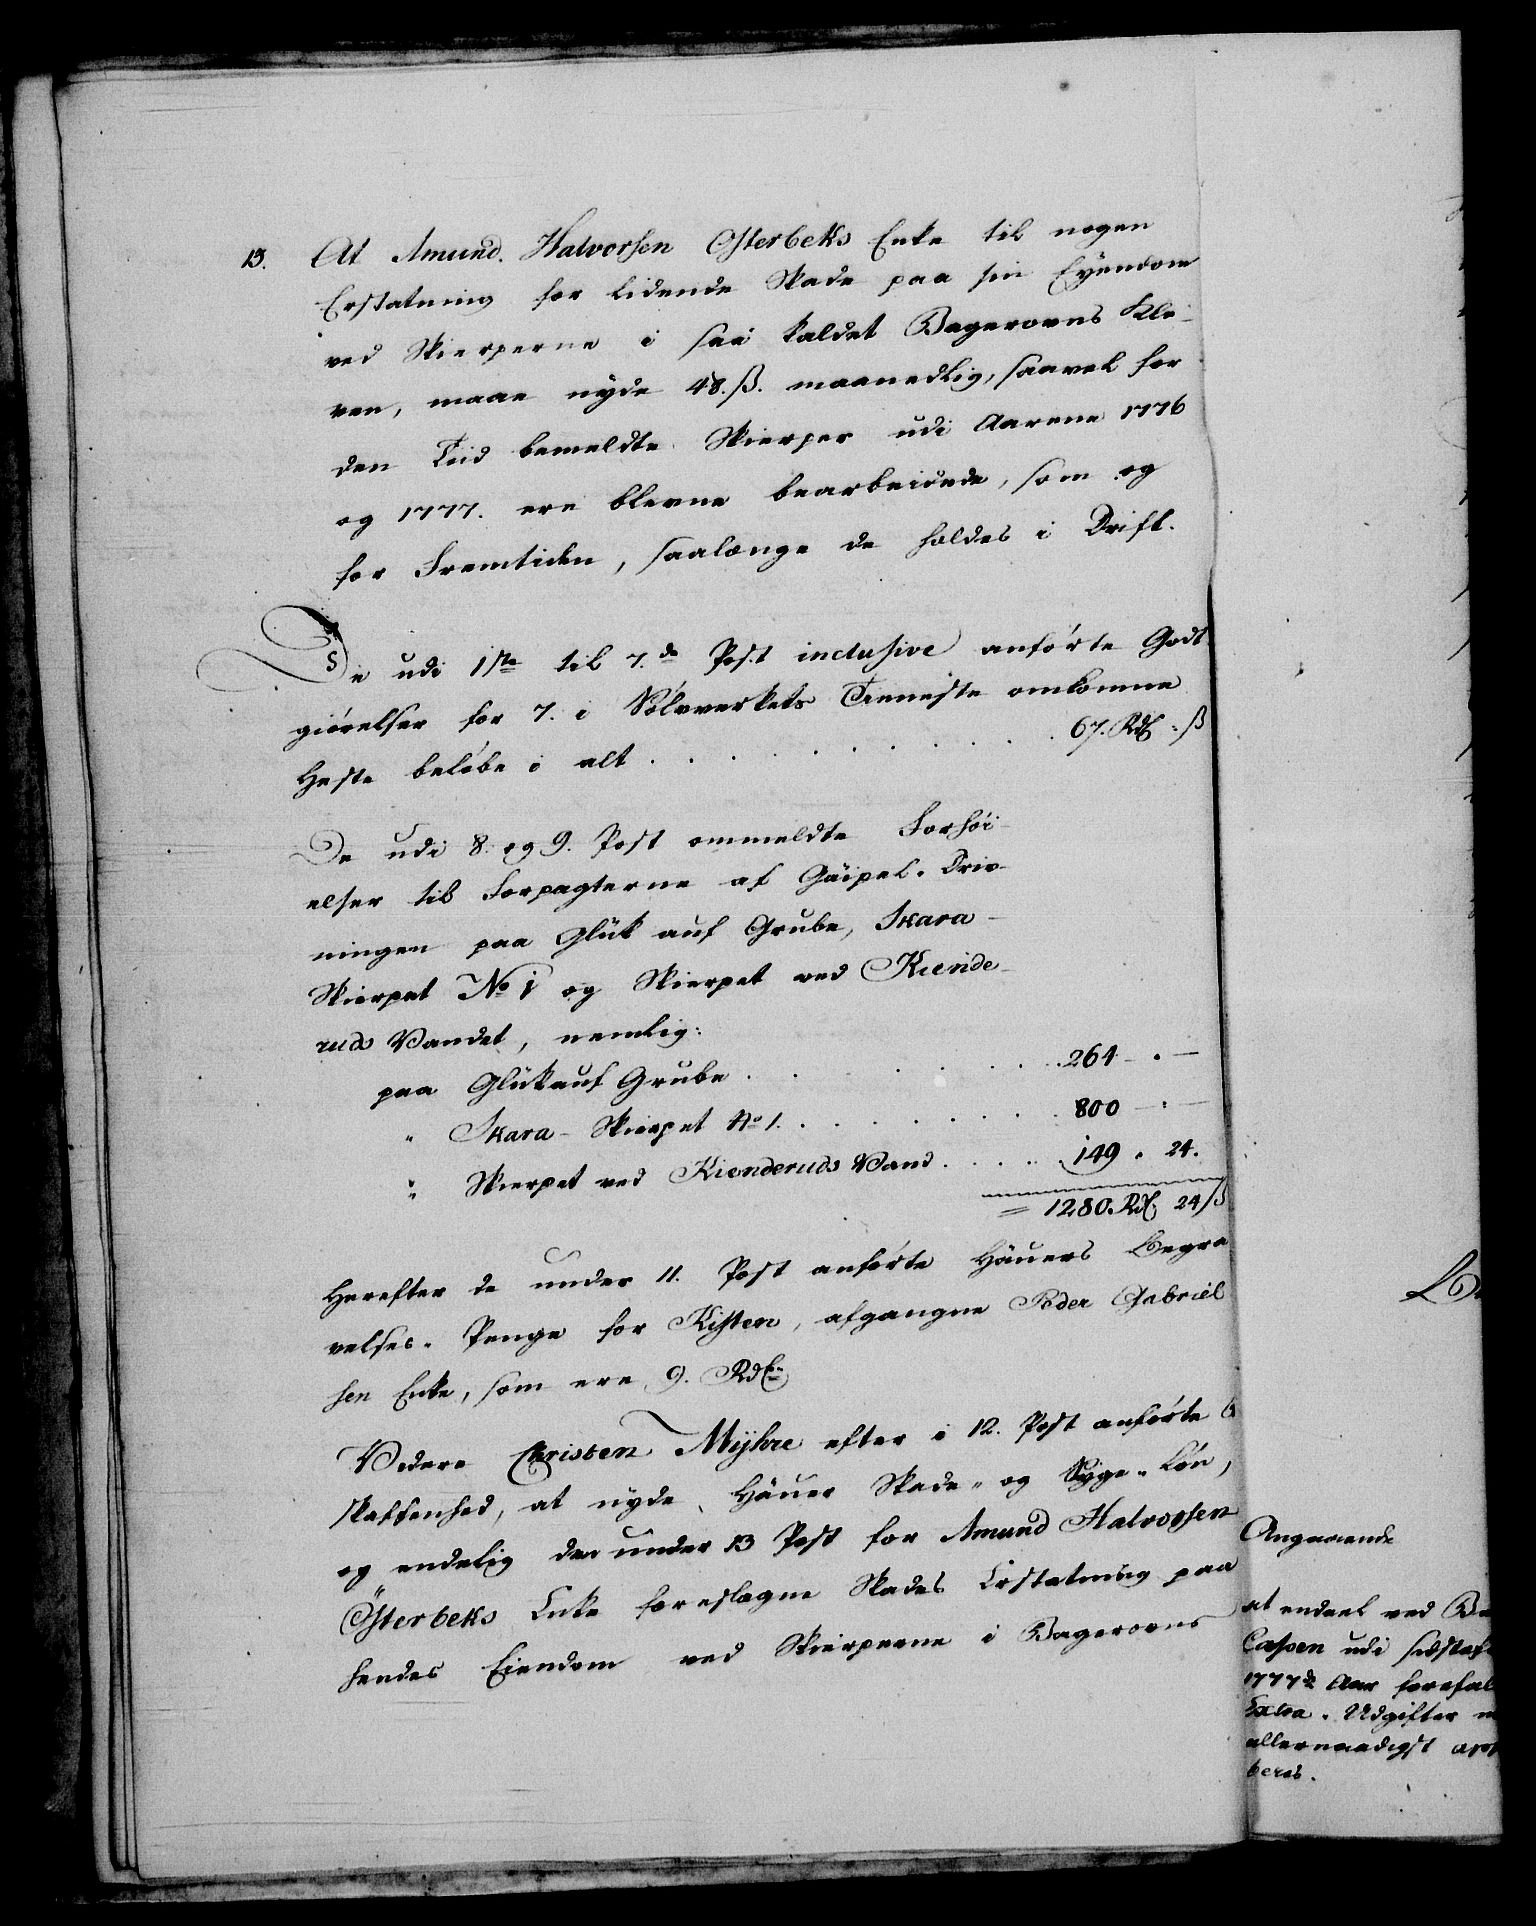 13. At Amund Halvorsen Østerbeks Enke til nogen
Erstatning for lidende Skade paa sin Eyendom
ved Skierperne i saa kaldet Bagerovns Kle-
ven, maae nyde 48.ß. maanedlig, saavel for
den Tiid bemeldte Skierper udi Aarene 1776
og 1777. ere blevne bearbeidede, som og
for Fremtiden, saalænge de holdes i Drift.
De udi 1ste til 7.de Post inclusive anførte Godt-
giørelser for 7. i Sølvverkets Tieneste omkomne
Heste beløbe i alt . . . . . . . . . . 67. Rd . ß
De udi 8. og 9. Post ommeldte Forhøi-
elser til Forpagterne af Gäipel-Driv-
ningen paa Glük auf Grube, Skara-
Skierpet No 1 og Skierpet ved Kiende-
ruds Vandet, nemlig:
paa Glükauf Grube . . . . . . . . 264 - . -
" Skara-Skierpet No 1. . . . . . . . 800 - . -
" Skierpet ved Kienderuds Vand . . . . . 149 . 24.
= 1280. Rd 24 ß
Herefter de under 11. Post anførte Häuers Begra-
velses-Penge for Kisten, afgangne Peder Gabriel-
sen Enke, som ere 9. Rdlr
Videre Christen Myhre efter i 12. Post anførte B
skaffenhed, at nyde Häuer Skade- og Syge-Løn,
og endelig den under 13 Post for Amund Halvorsen
Østerbeks Enke foreslagne Skades Erstatning paa
hendes Eiendom ved Skierperne i Bagerovns
Angaaende
at endeel ved Be
Cassen udi sidstaf
1777de Aar forefal
Extra-Udgifter m
allernaadigst app
beres.